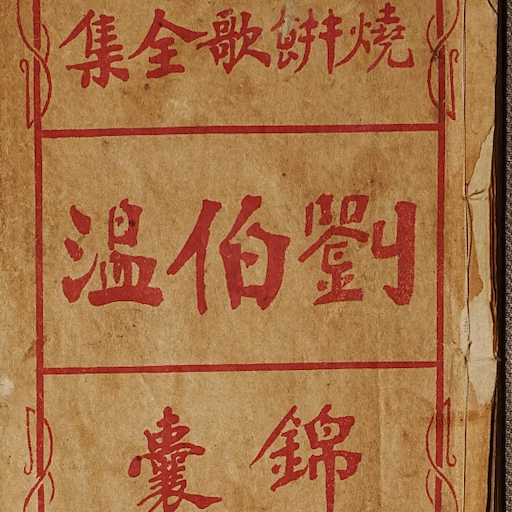 燒餅歌全集
劉伯溫
錦囊